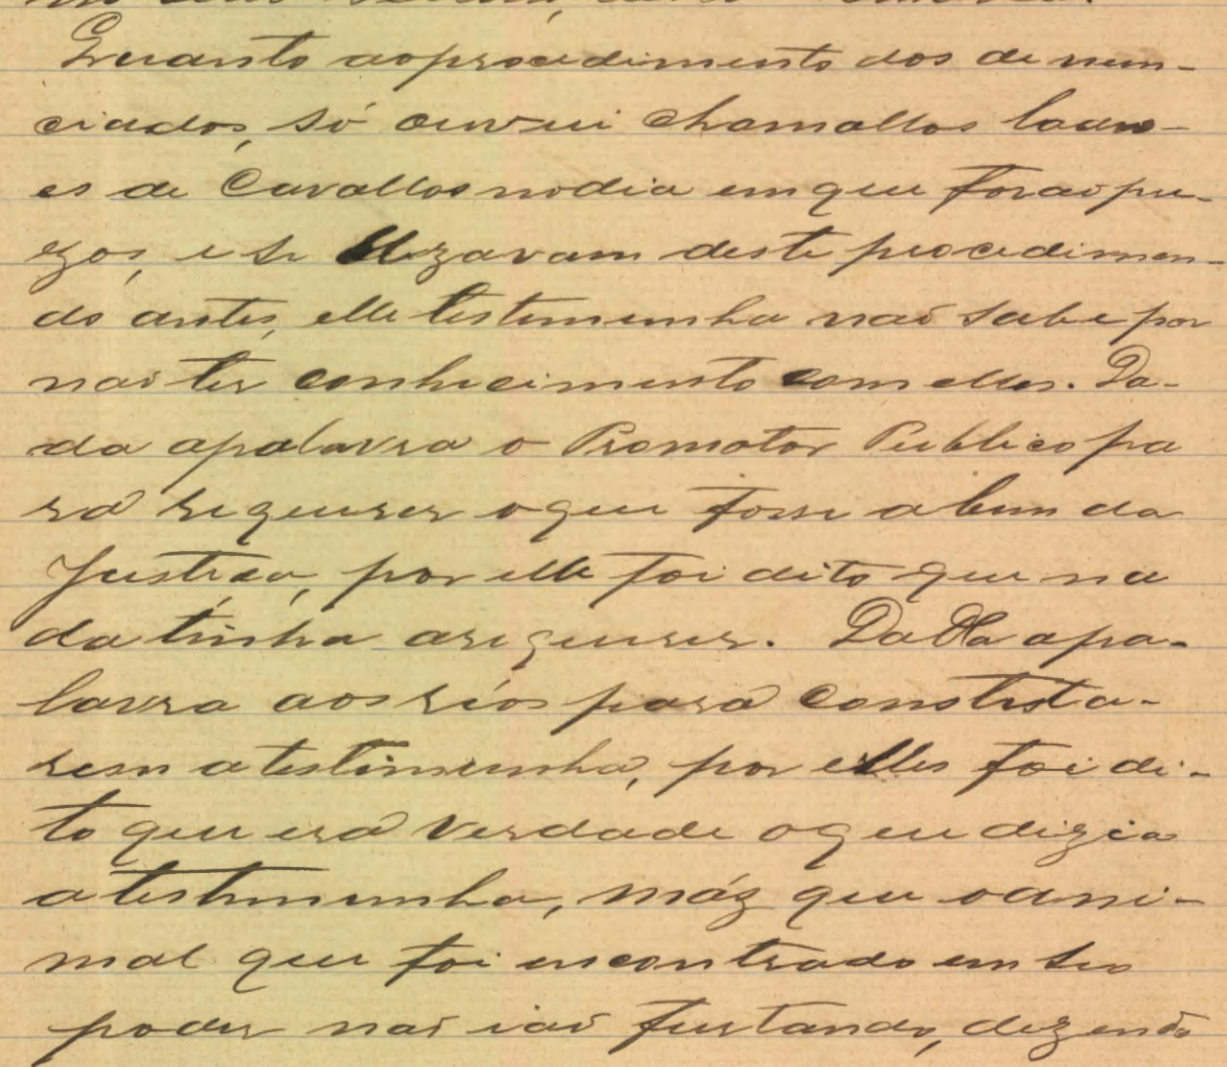 Quanto ao procedimento dos denun-
ciados, só ouviu chamallos ladro-
es de Cavallos no dia em que forão pre-
zos, e se uzavam deste procedimen-
do antes, elle testemunha não sabe por
não ter conhecimento com elles. Da-
da a palavra o Promotor Publico pa
rá requerer o que fosse a bem da
Justiça, por elle foi dito que na
da tinha a requerer. Dada a pa-
lavra aos réos pará constesta-
rem a testimunha, por elles foi di-
to que erá verdade o que dizia
a testimunha, máz que o ani-
mal que foi encontrado em seo
poder não ião furtando, dizendo